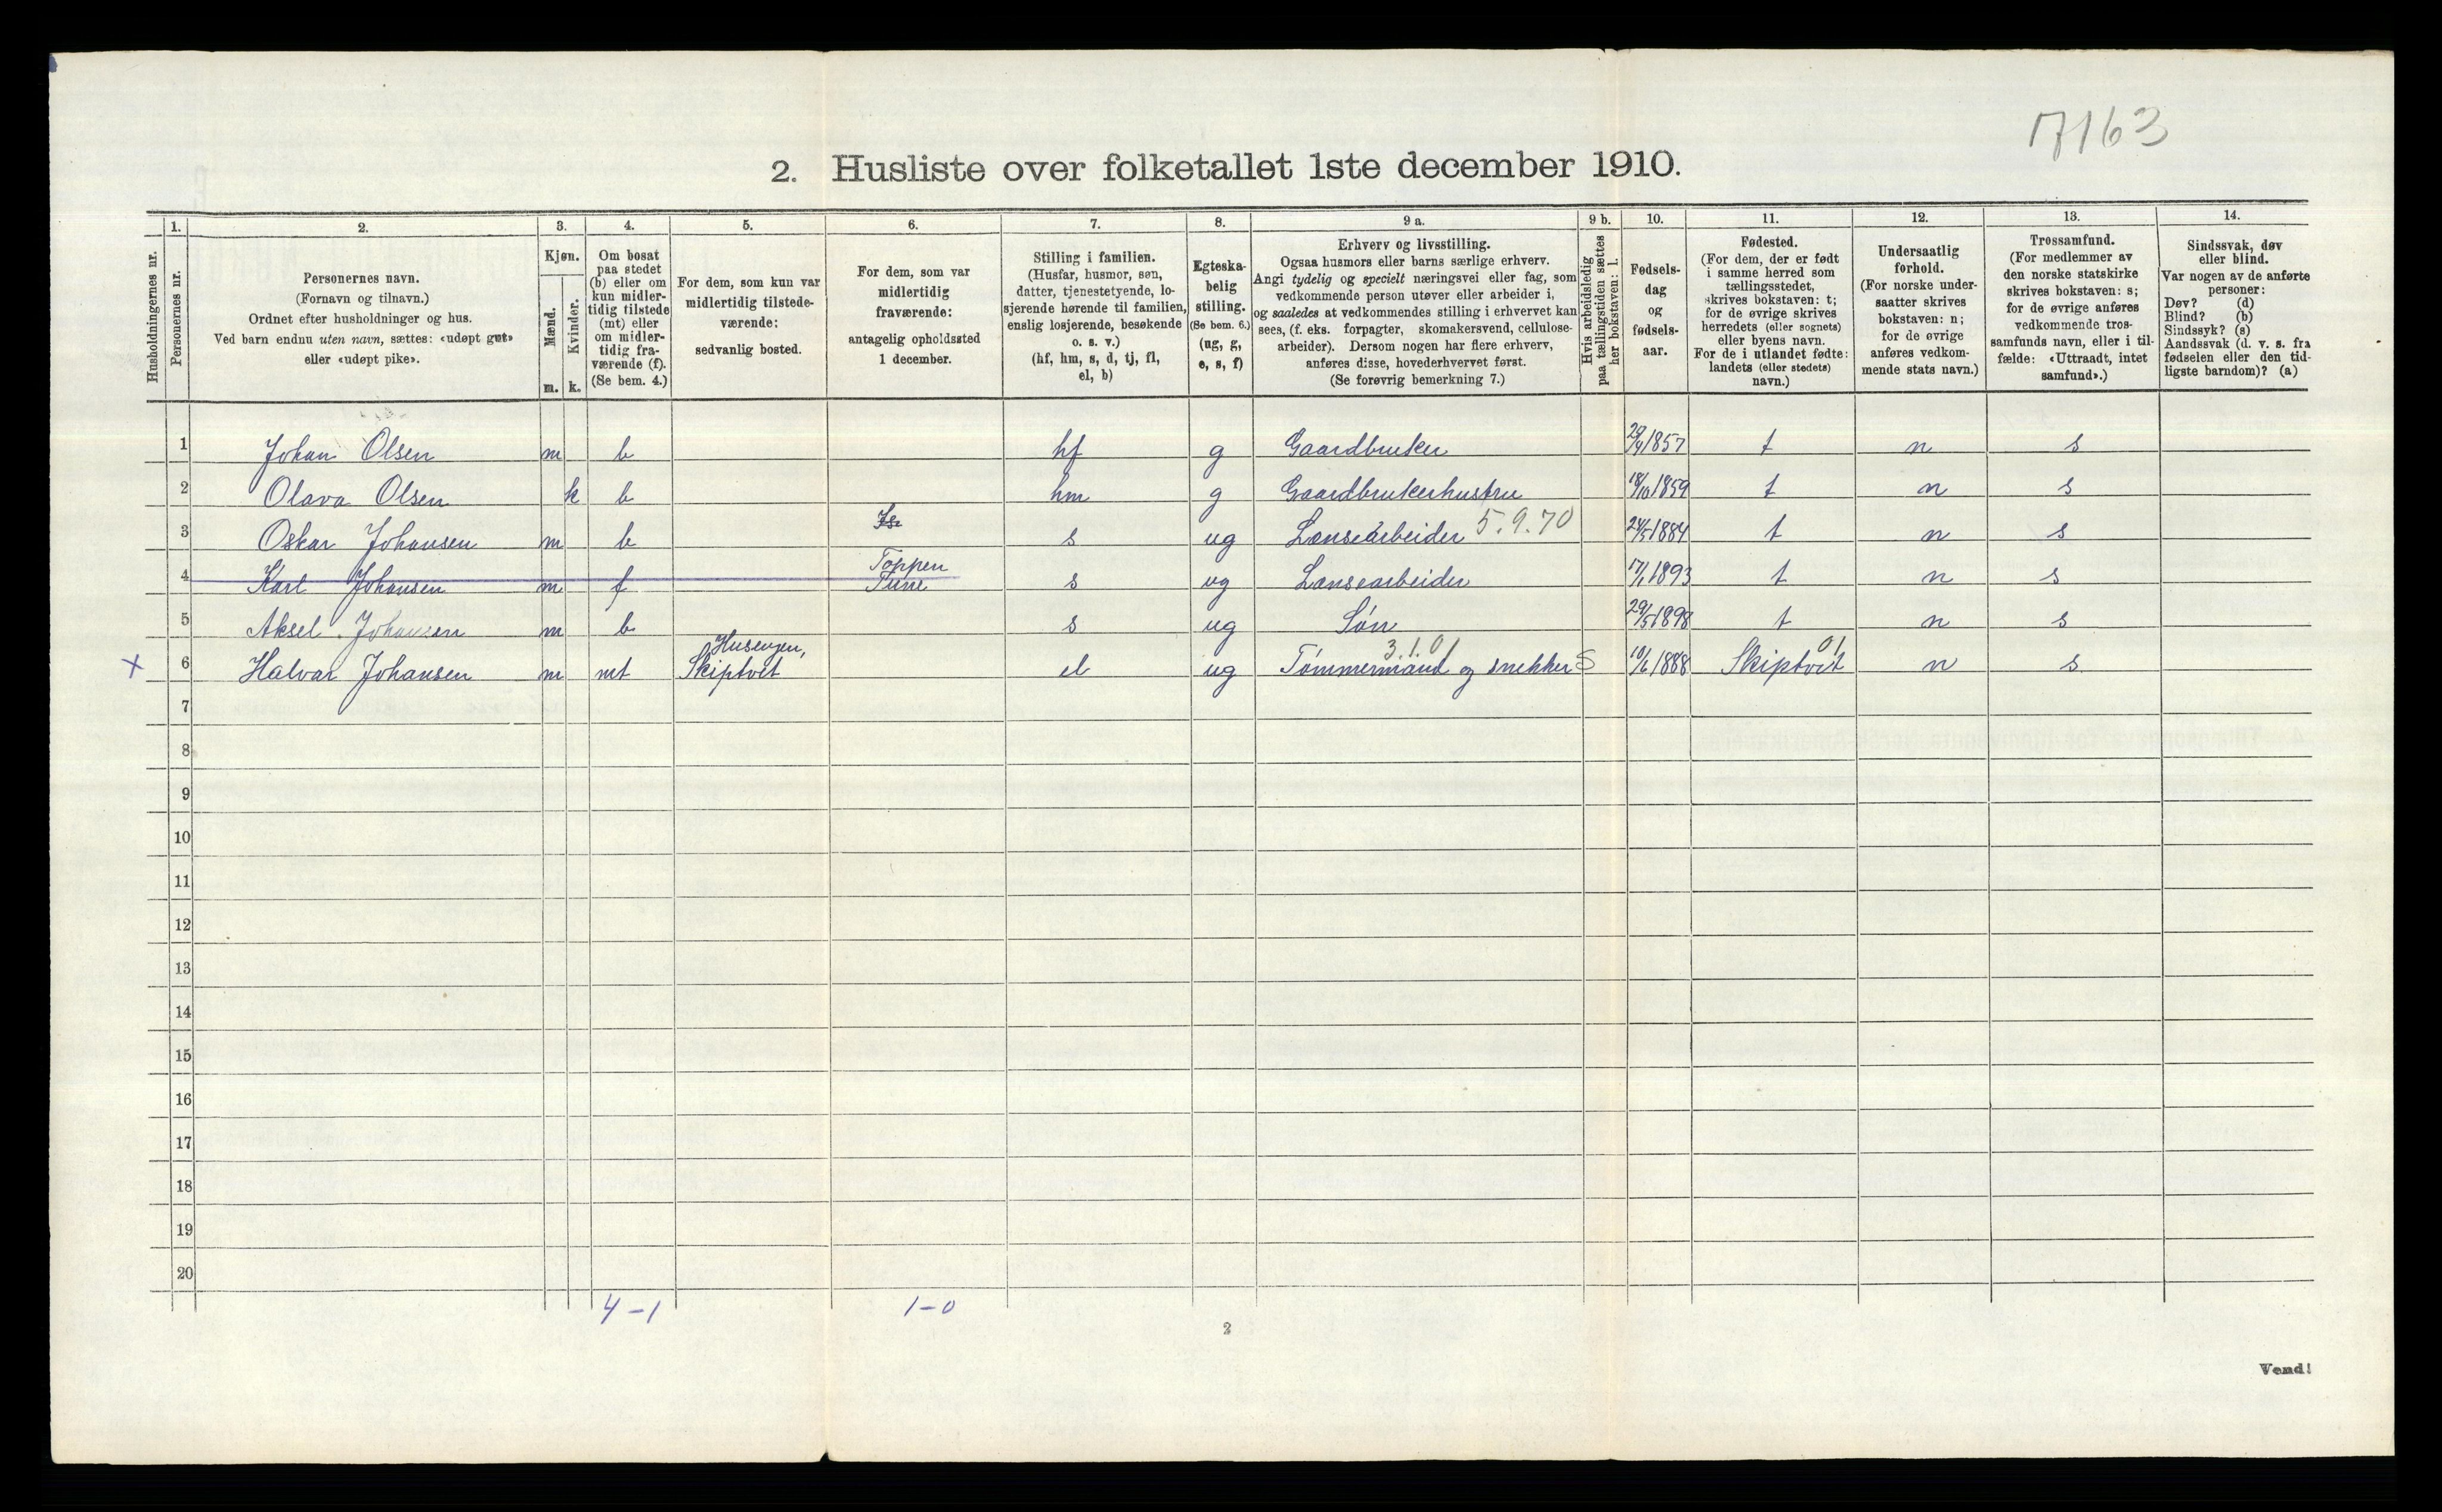 17163
2. Husliste over folketallet 1ste december 1910.
1. 2. 3. 4. 5. 6. 7. 8. 9 a. 9 b. 10. 11. 12. 13. 14.
Husholdningernes nr.
Personernes nr.
Personernes navn.
(Fornavn og tilnavn.)
Ordnet efter husholdninger og hus.
Ved barn endnu uten navn, sættes: «udøpt gut»
eller «udøpt pike».
Kjøn.
Mænd.
m.
Kvinder.
k.
Om bosat
paa stedet
(b) eller om
kun midler-
tidig tilstede
(mt) eller
om midler-
tidig fra-
værende (f).
(Se bem. 4.)
For dem, som kun var
midlertidig tilstede-
værende:
sedvanlig bosted.
For dem, som var
midlertidig
fraværende:
antagelig opholdssted
1 december.
Stilling i familien.
(Husfar, husmor, søn,
datter, tjenestetyende, lo-
sjerende hørende til familien,
enslig losjerende, besøkende
o. s. v.)
(hf, hm, s, d, tj, fl,
el, b)
Egteska-
belig
stilling.
(Se bem. 6.)
(ug, g,
e, s, f)
Erhverv og livsstilling.
Ogsaa husmors eller barns særlige erhverv.
Angi tydelig og specielt næringsvei eller fag, som
vedkommende person utøver eller arbeider i,
og saaledes at vedkommendes stilling i erhvervet kan
sees, (f. eks. forpagter, skomakersvend, cellulose-
arbeider). Dersom nogen har flere erhverv,
anføres disse, hovederhvervet først.
(Se forøvrig bemerkning 7.)
Hvis arbeidsledig
paa tællingstiden sættes
her bokstaven: l.
Fødsels-
dag
og
fødsels-
aar.
Fødested.
(For dem, der er født
i samme herred som
tællingsstedet,
skrives bokstaven: t;
for de øvrige skrives
herredets (eller sognets)
eller byens navn.
For de i utlandet fødte:
landets (eller stedets)
navn.)
Undersaatlig
forhold.
(For norske under-
saatter skrives
bokstaven: n;
for de øvrige
anføres vedkom-
mende stats navn.)
Trossamfund.
(For medlemmer av
den norske statskirke
skrives bokstaven: s;
for de øvrige anføres
vedkommende tros-
samfunds navn, eller i til-
fælde: «Uttraadt, intet
samfund».)
Sindssvak, døv
eller blind.
Var nogen av de anførte
personer:
Døv? (d)
Blind? (b)
Sindssyk? (s)
Aandssvak (d. v. s. fra
fødselen eller den tid-
ligste barndom)? (a)
1 Johan Olsen m b hf g Gaardbruker 29/4 1857 t n s
2 Olava Olsen k b hm g Gaardbrukerhustru 18/10 1859 t n s
3 Oskar Johansen m b s ug Lænsearbeider 5.9.70 24/5 1884 t n s
Toppen
4 Karl Johansen m f Tune s ug Lænsearbeider 17/1 1893 t n s
5 Aksel Johansen m b s ug Søn 29/5 1898 t n s
Husengen, 3.1.01 01
x 6 Halvar Johansen m mt Skiptvet el ug Tømmermand og snekker S 10/6 1888 Skiptvet n s
7
8
9
10
11
12
13
14
15
16
17
18
19
20
4-1 1-0
2
Vend!